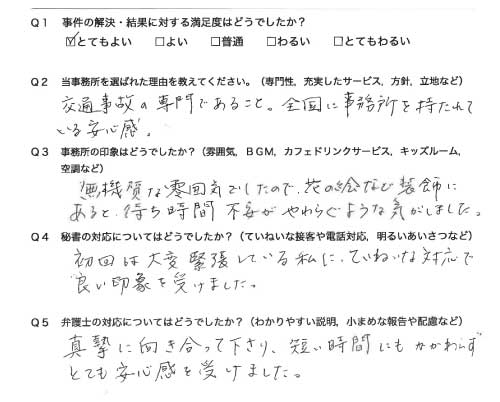 Q1 事件の解決・結果に対する満足度はどうでしたか?
☑とてもよい □よい □普通 □わるい □とてもわるい
Q2 当事務所を選ばれた理由を教えてください。(専門性, 充実したサービス, 方針, 立地など)
交通事故の専門であること。全国に事務所を持たれて
いる安心感。
Q3 事務所の印象はどうでしたか?(雰囲気, BGM, カフェドリンクサービス, キッズルーム,
空調など)
無機質な雰囲気でしたので、花の絵など装飾に
あると、待ち時間 不安がやわらぐような気がしました。
Q4 秘書の対応についてはどうでしたか?(ていねいな接客や電話対応, 明るいあいさつなど)
初回は大変緊張している私に、ていねいな対応で
良い印象を受けました。
Q5 弁護士の対応についてはどうでしたか?(わかりやすい説明, 小まめな報告や配慮など)
真摯に向き合って下さり、短い時間にもかかわらず
とても安心感を受けました。